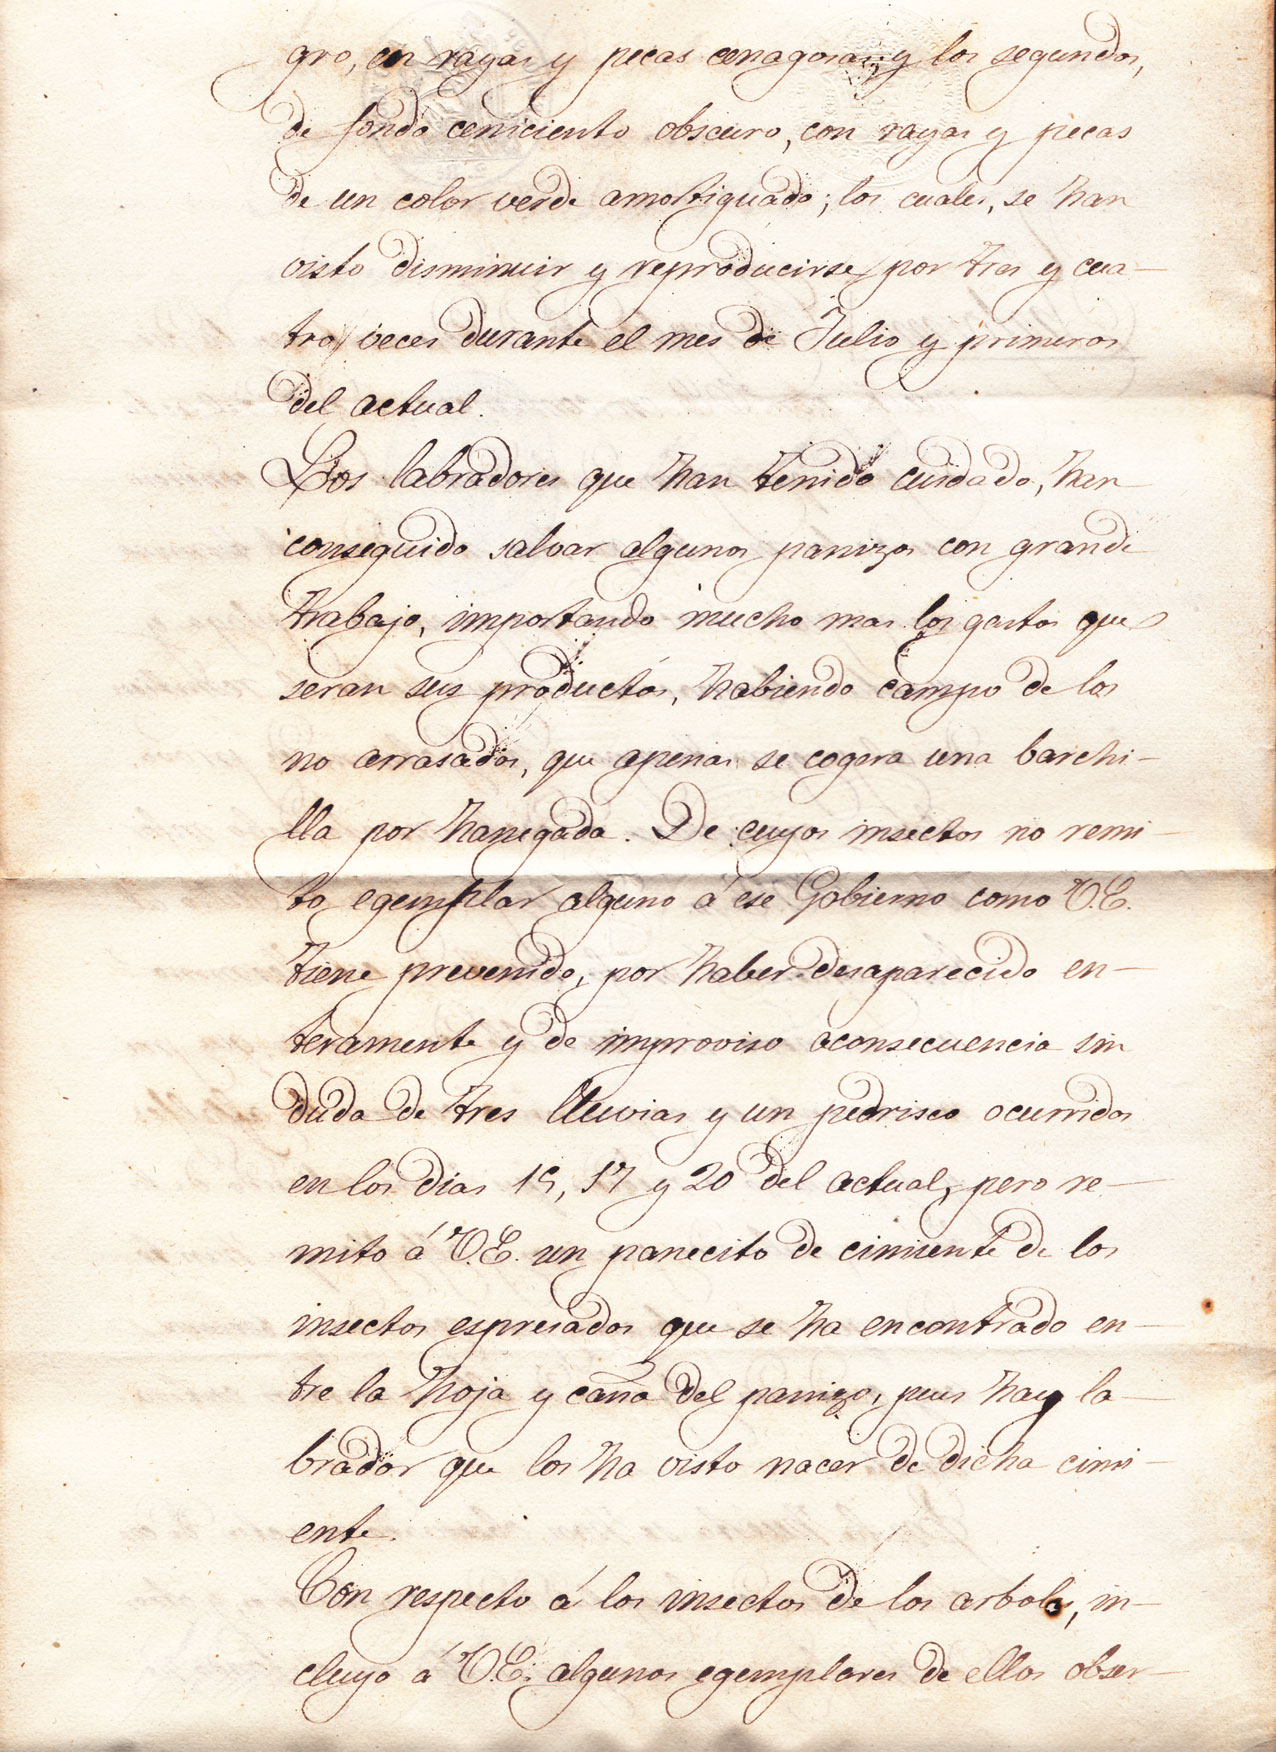 gro, en rayas y pecas cenagosas y los segundos,
de fondo ceniciento obscuro, con rayas y pecas
de un color verde amortiguado; los cuales, se han
visto disminuir y reproducirse por tres y cua-
tro veces durante el mes de Julio y primeros
del actual.
Los labradores que han tenido cuidado, han
conseguido salvar algunos panizos con grande
trabajo, importando mucho mas los gastos que
seran sus productos, habiendo campo de los
no arrasados, que apenas se cogera una barchi-
lla por hanegada. De cuyos insectos no remi-
to egemplar alguno á ese Gobierno como V.E.
tiene prevenido, por haber desaparecido en-
teramente y de improviso aconsecuencia sin
duda de tres lluvias y un pedrisco ocurridos
en los dias 15, 17 y 20 del actual, pero re-
mito á V.E. un panecito de cimiente de los
insectos espresados que se ha encontrado en-
tre la hoja y caña del panizo, pues hay la-
brador que los ha visto nacer de dicha cimi-
ente.
Con respecto á los insectos de los arboles, in-
cluyo á V.E. algunos egemplares de ellos obser-